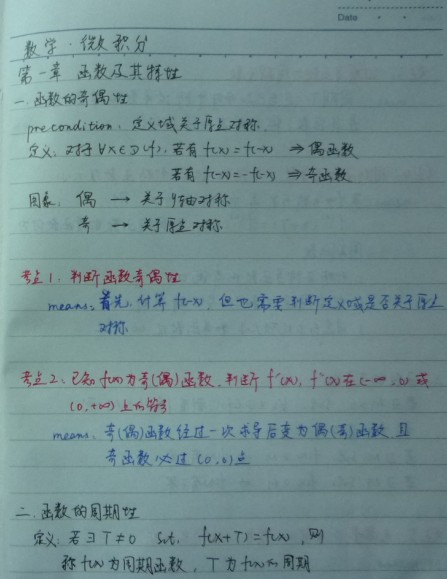 Date
数学·微积分
第一章 函数及其特性
一.函数的奇偶性
precondition. 定义域关于原点对称.
定义: 对于∀x∈D(f), 若有 f(x)=f(-x) ⇒偶函数
若有 f(-x)=-f(x) ⇒奇函数
图象: 偶 → 关于y轴对称
奇 → 关于原点对称.
考点1: 判断函数奇偶性
means: 首先计算 f(-x), 但也需要判断定义域是否关于原点
对称.
考点2: 已知f(x)为奇(偶)函数, 判断 f'(x), f"(x)在(-∞,0)或
(0,+∞)上的符号
means: 奇(偶)函数经过一次求导后变为偶(奇)函数, 且
奇函数必过(0,0)点
二.函数的周期性
定义: 若∃T≠0 s.t. f(x+T)=f(x), 则
称f(x)为周期函数, T为f(x)的周期